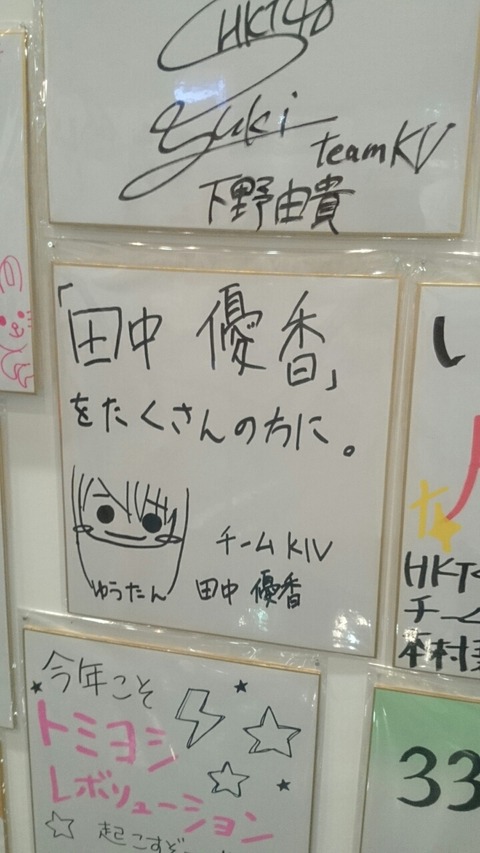 HKT48
Yuki
teamKIV
下野由貴
「田中 優香」
をたくさんの方に。
ゆうたん
チームKIV
田中 優香
い
HKT4
チーム
本村
今年こそ
トミヨシ
レボリューション
起こすぞ
33